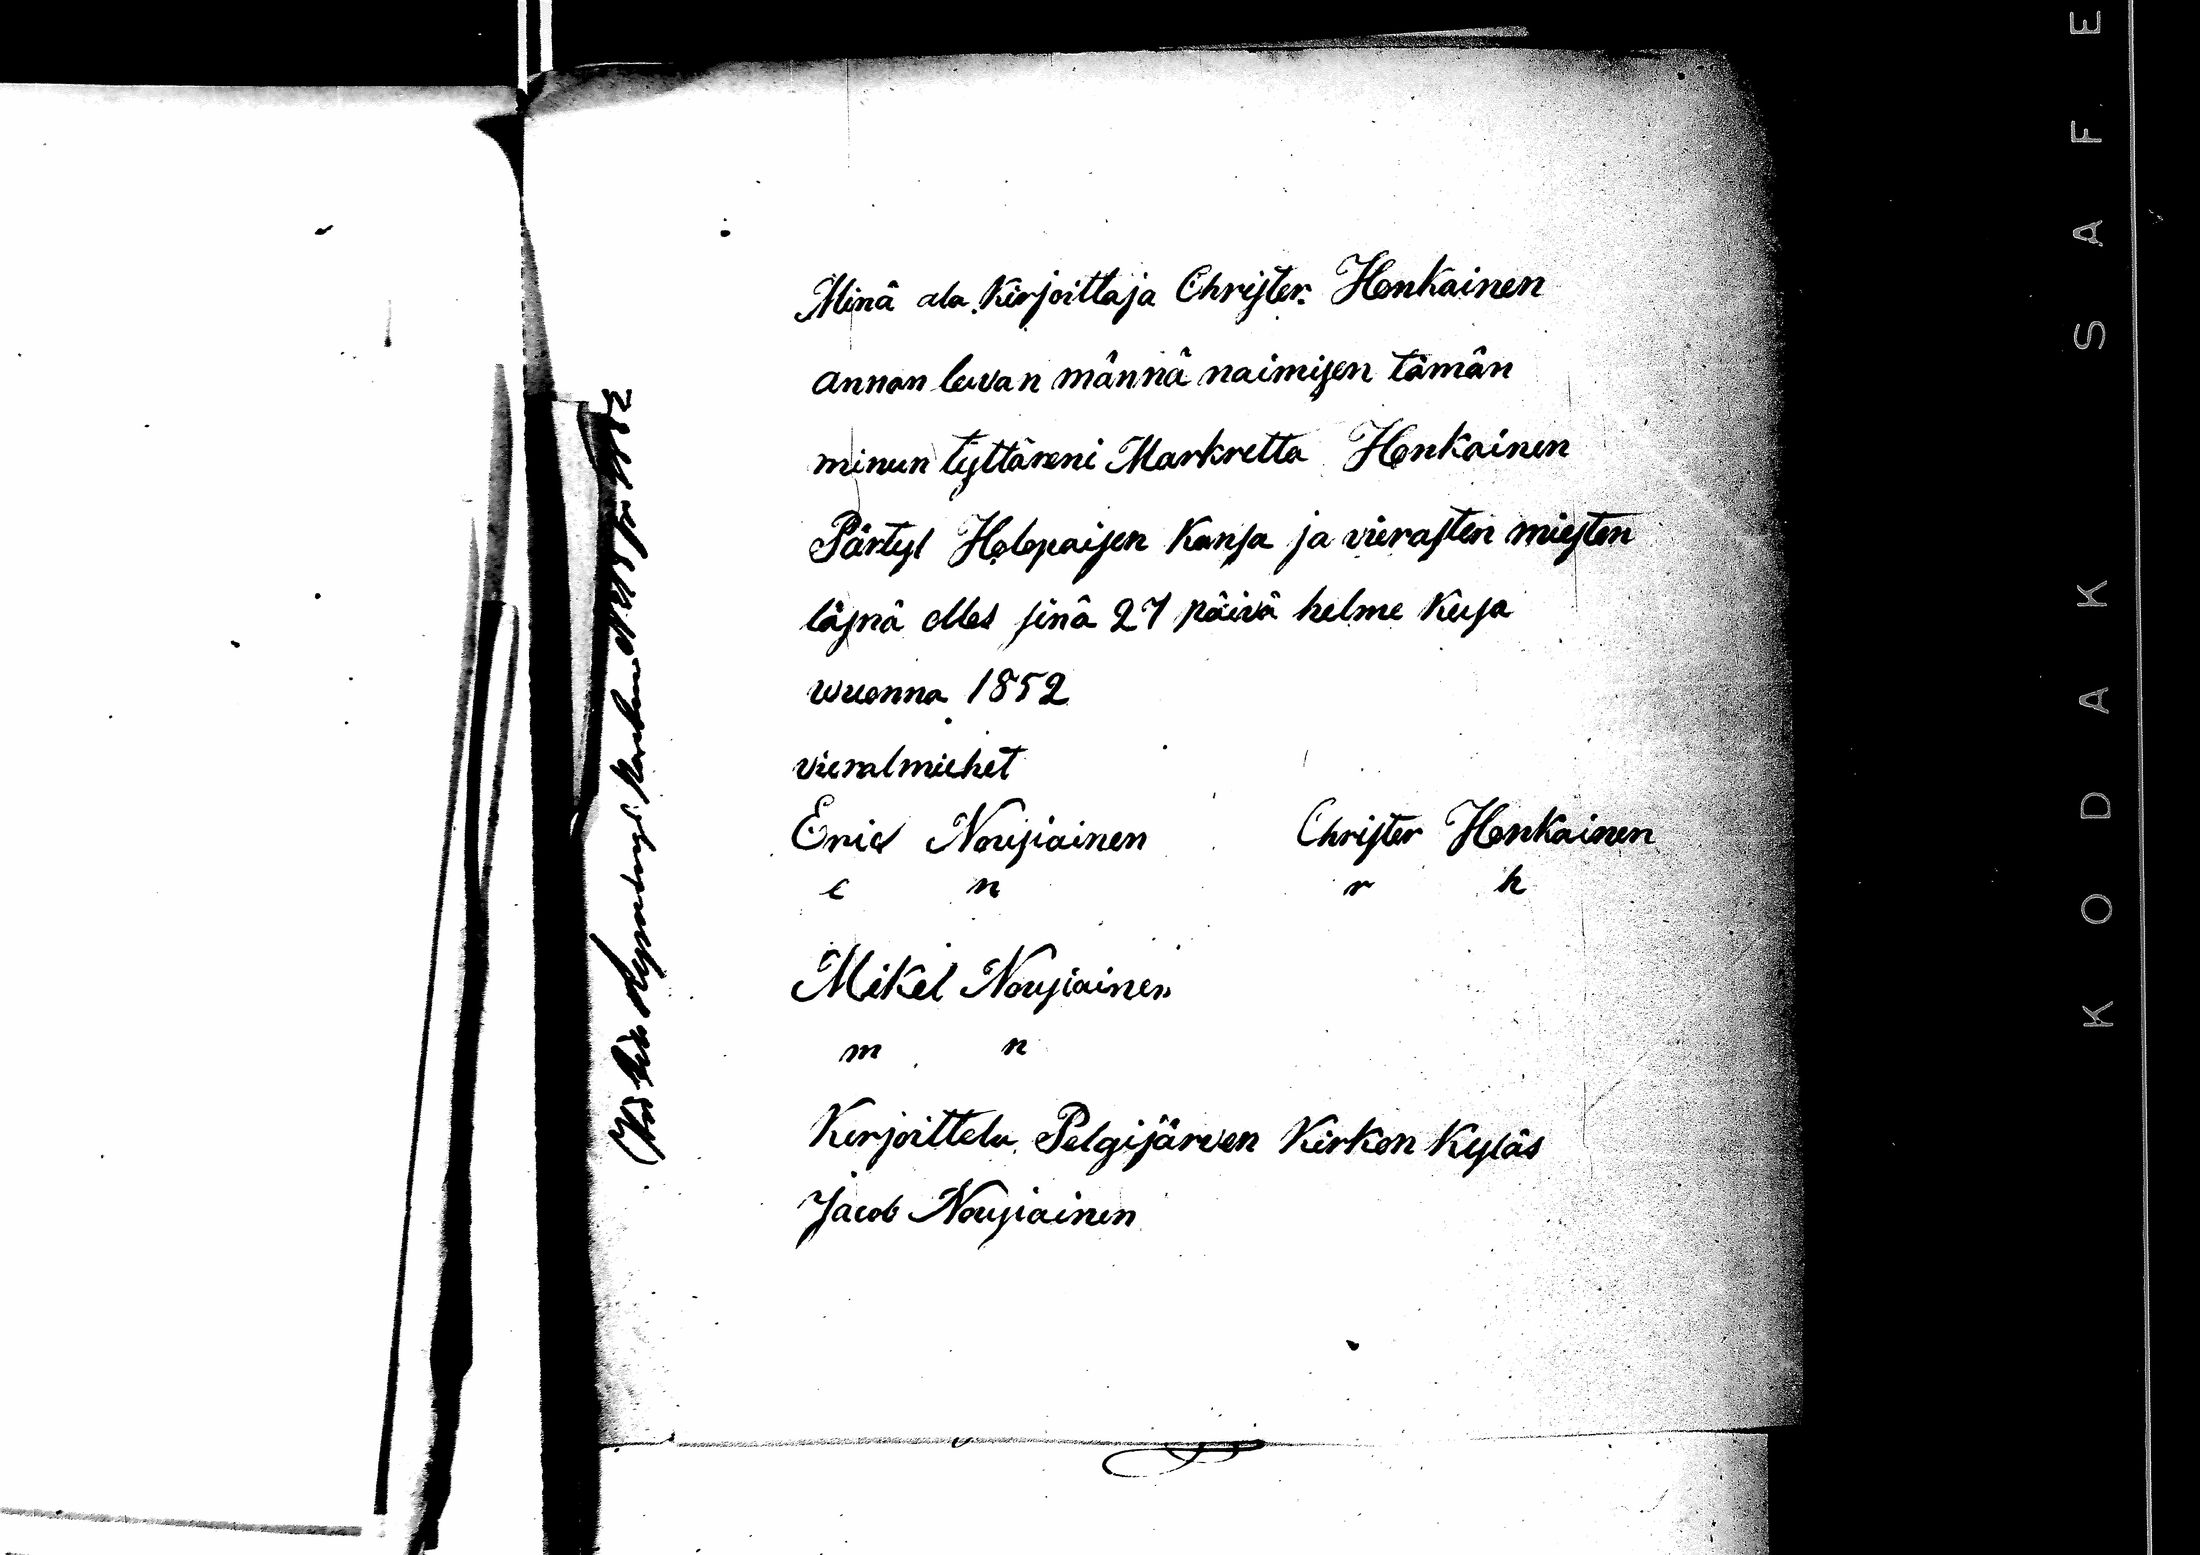 Minä ala Kirjoittaja Christer Honkainen
annan luvan männä naimisen tämän
minun tyttäreni Markretta Honkainen
Pärtyl Holopaisen Kansa ja vierasten miesten
läsnä olles sinä 27 päivä helme Kusa
wuonna 1852
vieralmiehet
Eric Nousiainen Christer Honkainen
e n r h
Mikel Nousiainen
m n
Kirjoittelu Pelgijärwen Kirkon Kyläs
Jacob Nousiainen
KODAK SAFE